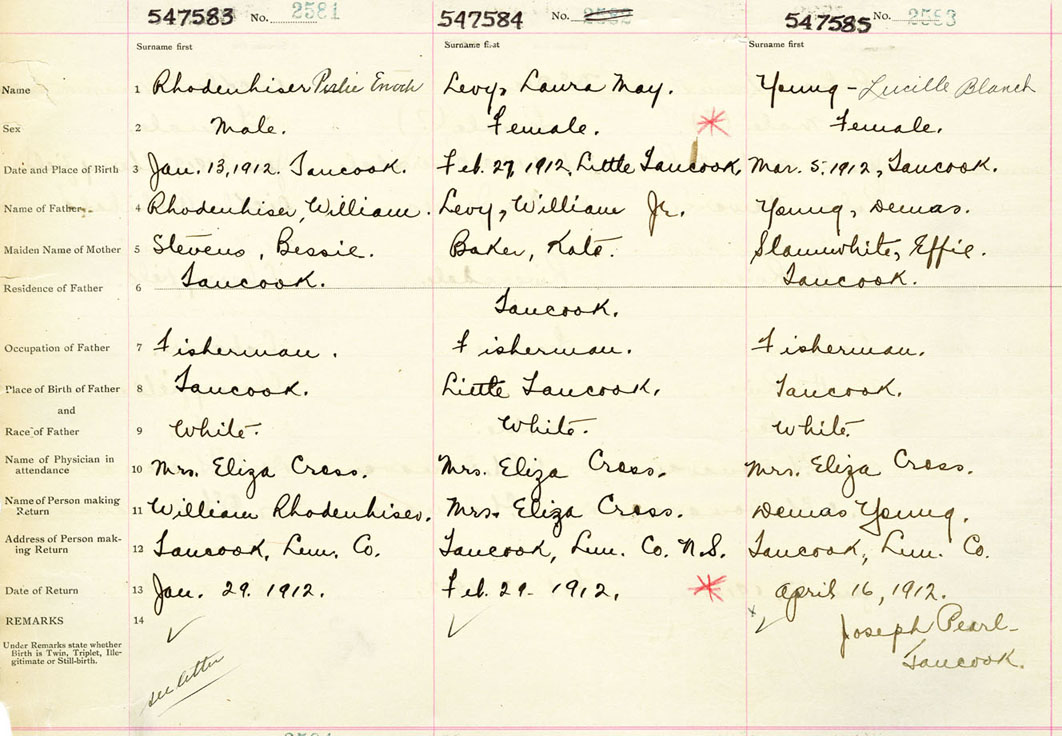 547583 No. 2581 547584 No. 547585 No. 2583
Surname first Surname first Surname first
Name 1 Rhodenhiser Enoch Levy, Laura May. Young - Lucille Blanch
Sex 2 Male. Female. Female.
Date and Place of Birth 3 Jan. 13, 1912. Tancook. Feb. 27, 1912, Little Tancook, Mar. 5, 1912, Tancook.
Name of Father 4 Rhodenhiser, William. Levy, William Jr. Young, Demas.
Maiden Name of Mother 5 Stevens, Bessie. Baker, Kate. Slaunwhite, Effie.
Residence of Father 6 Tancook. Tancook. Tancook.
Occupation of Father 7 Fisherman. Fisherman. Fisherman.
Place of Birth of Father 8 Tancook. Little Tancook. Tancook.
and
Race of Father 9 White. White. White.
Name of Physician in
attendance 10 Mrs. Eliza Cross. Mrs. Eliza Cross. Mrs. Eliza Cross.
Name of Person making
Return 11 William Rhodenhiser. Mrs. Eliza Cross. Demas Young.
Address of Person mak-
ing Return 12 Tancook, Lun. Co. Tancook, Lun. Co. N.S. Tancook, Lun. Co.
Date of Return 13 Jan. 29. 1912. Feb. 29. 1912. April 16, 1912.
REMARKS 14 Joseph Pearl-
Under Remarks state whether
Birth is Twin, Triplet, Ille-
gitimate or Still-birth. Tancook.
see letter